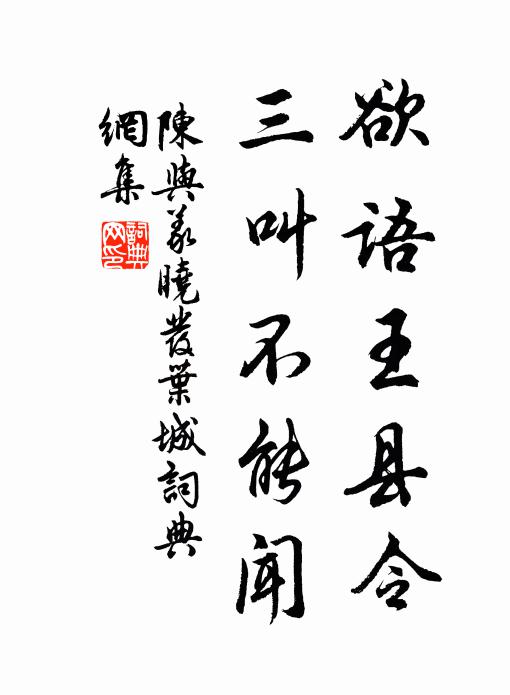 欲语王县令
三叫不能闻
陳與义曉發葉城詞典
網集
詞典
网印